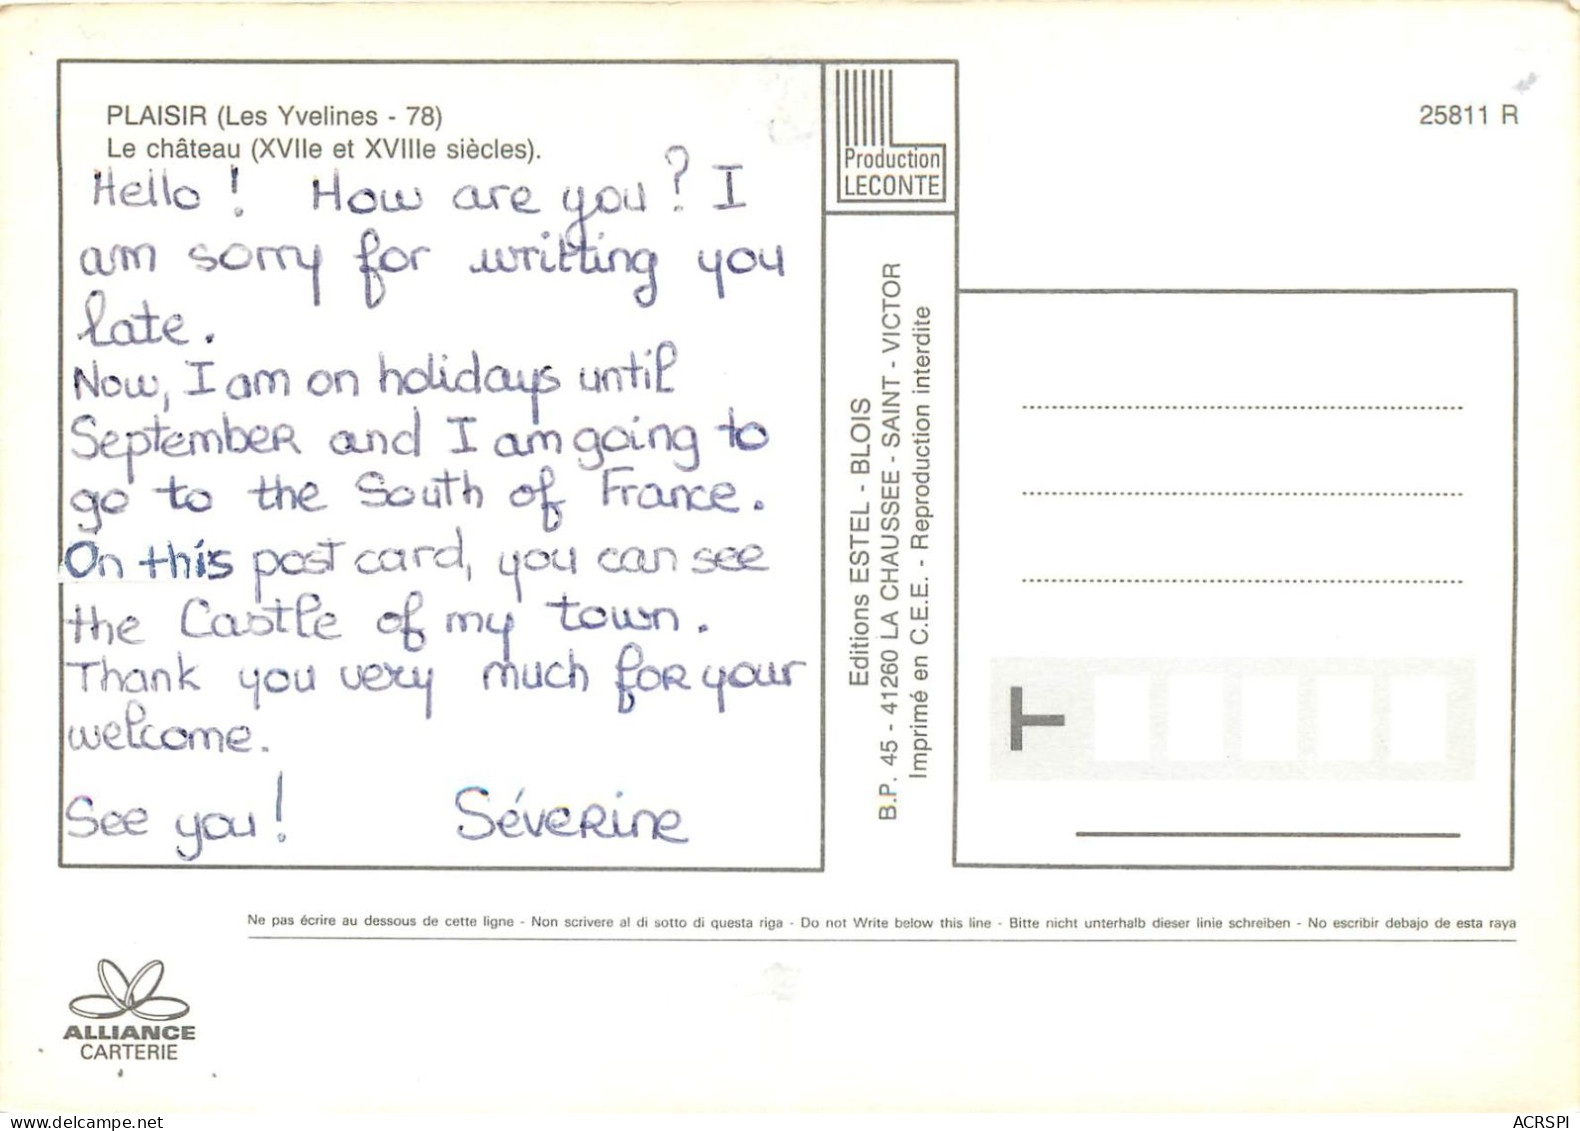 PLAISIR (Les Yvelines - 78)
Le château (XVIIe et XVIIIe siècles).
Hello! How are you? I
am sorry for writting you
late.
Now, I am on holidays until
September and I am going to
go to the South of France.
On this post card, you can see
the Castle of my town.
Thank you very much for your
welcome.
See you! Séverine
Production
LECONTE
Editions ESTEL - BLOIS
B.P. 45 - 41260 LA CHAUSSEE - SAINT - VICTOR
Imprimé en C.E.E. - Reproduction interdite
25811 R
T
Ne pas écrire au dessous de cette ligne - Non scrivere al di sotto di questa riga - Do not Write below this line - Bitte nicht unterhalb dieser linie schreiben - No escribir debajo de esta raya
ALLIANCE
CARTERIE
ACRSPI